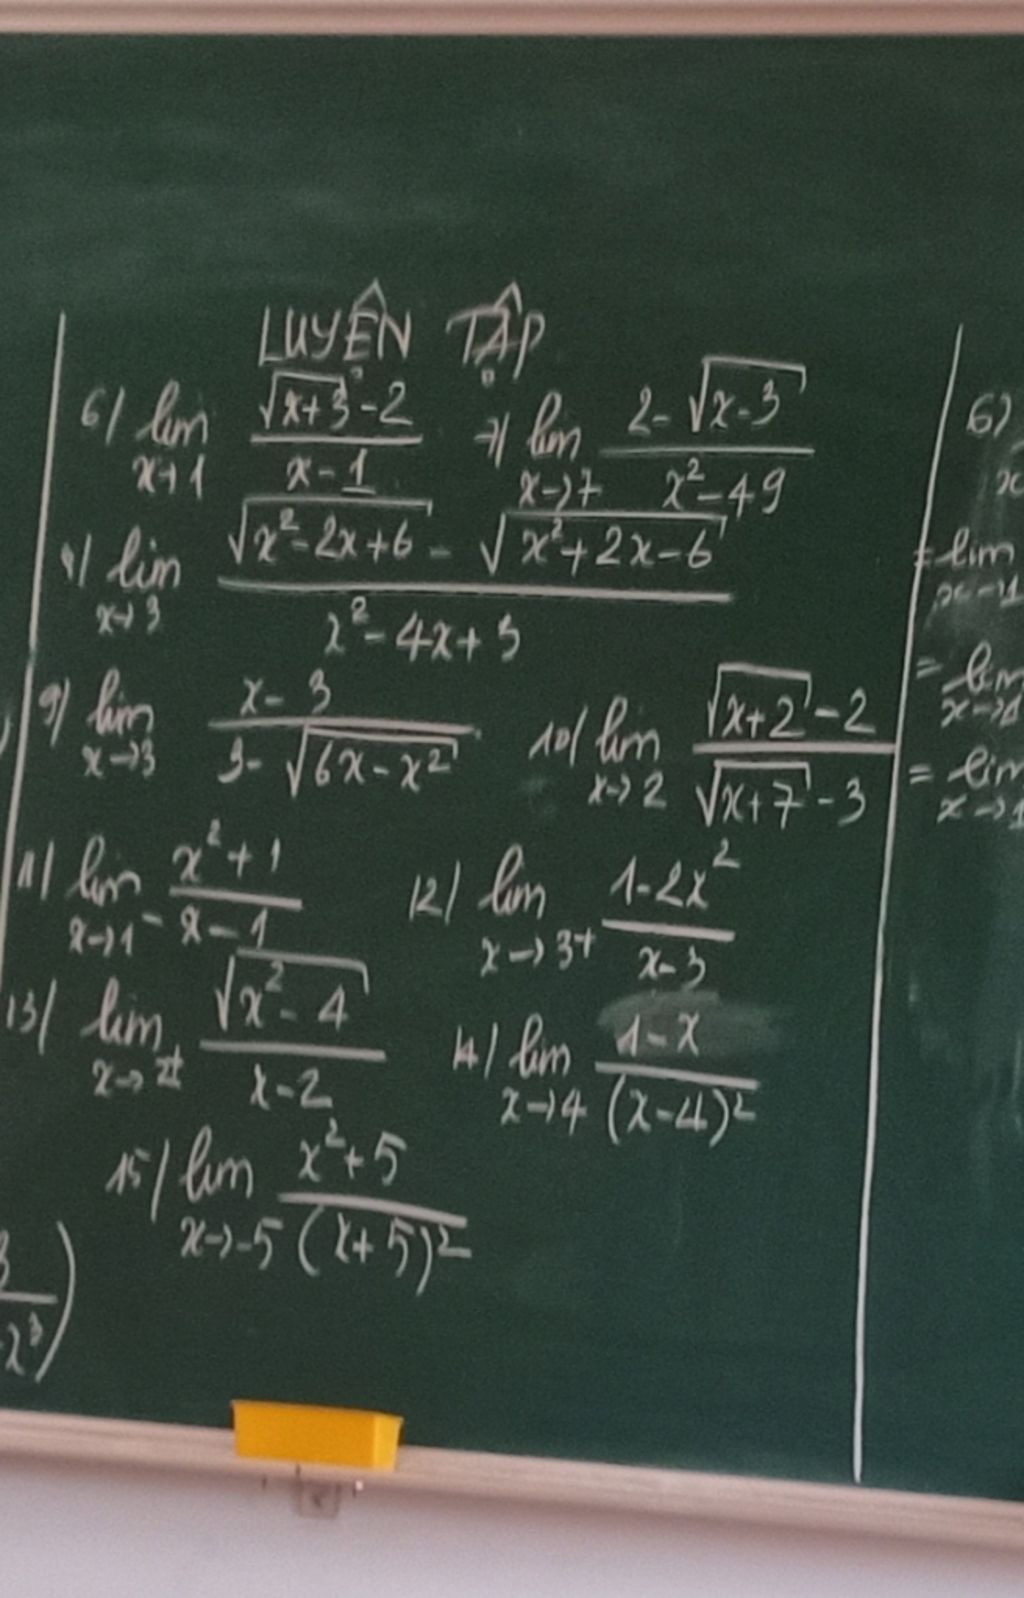 LUYỆN TẬP
6/ lim x→1 (√(x+3) - 2)/(x - 1)
7/ lim x→7 (2 - √(x-3))/(x² - 49)
8/ lim x→3 (√(x² - 2x + 6) - √(x² + 2x - 6))/(x² - 4x + 3)
9/ lim x→3 (x - 3)/(3 - √(6x - x²))
10/ lim x→2 (√(x+2) - 2)/(√(x+7) - 3)
11/ lim x→1⁻ (x² + 1)/(x - 1)
12/ lim x→3⁺ (1 - 2x²)/(x - 3)
13/ lim (√(x² - 4))/(x - 2)
14/ lim x→4 (1 - x)/(x - 4)²
15/ lim x→-5 (x² + 5)/(x + 5)²
6)
= lim x→1
= lim
= lim x→1